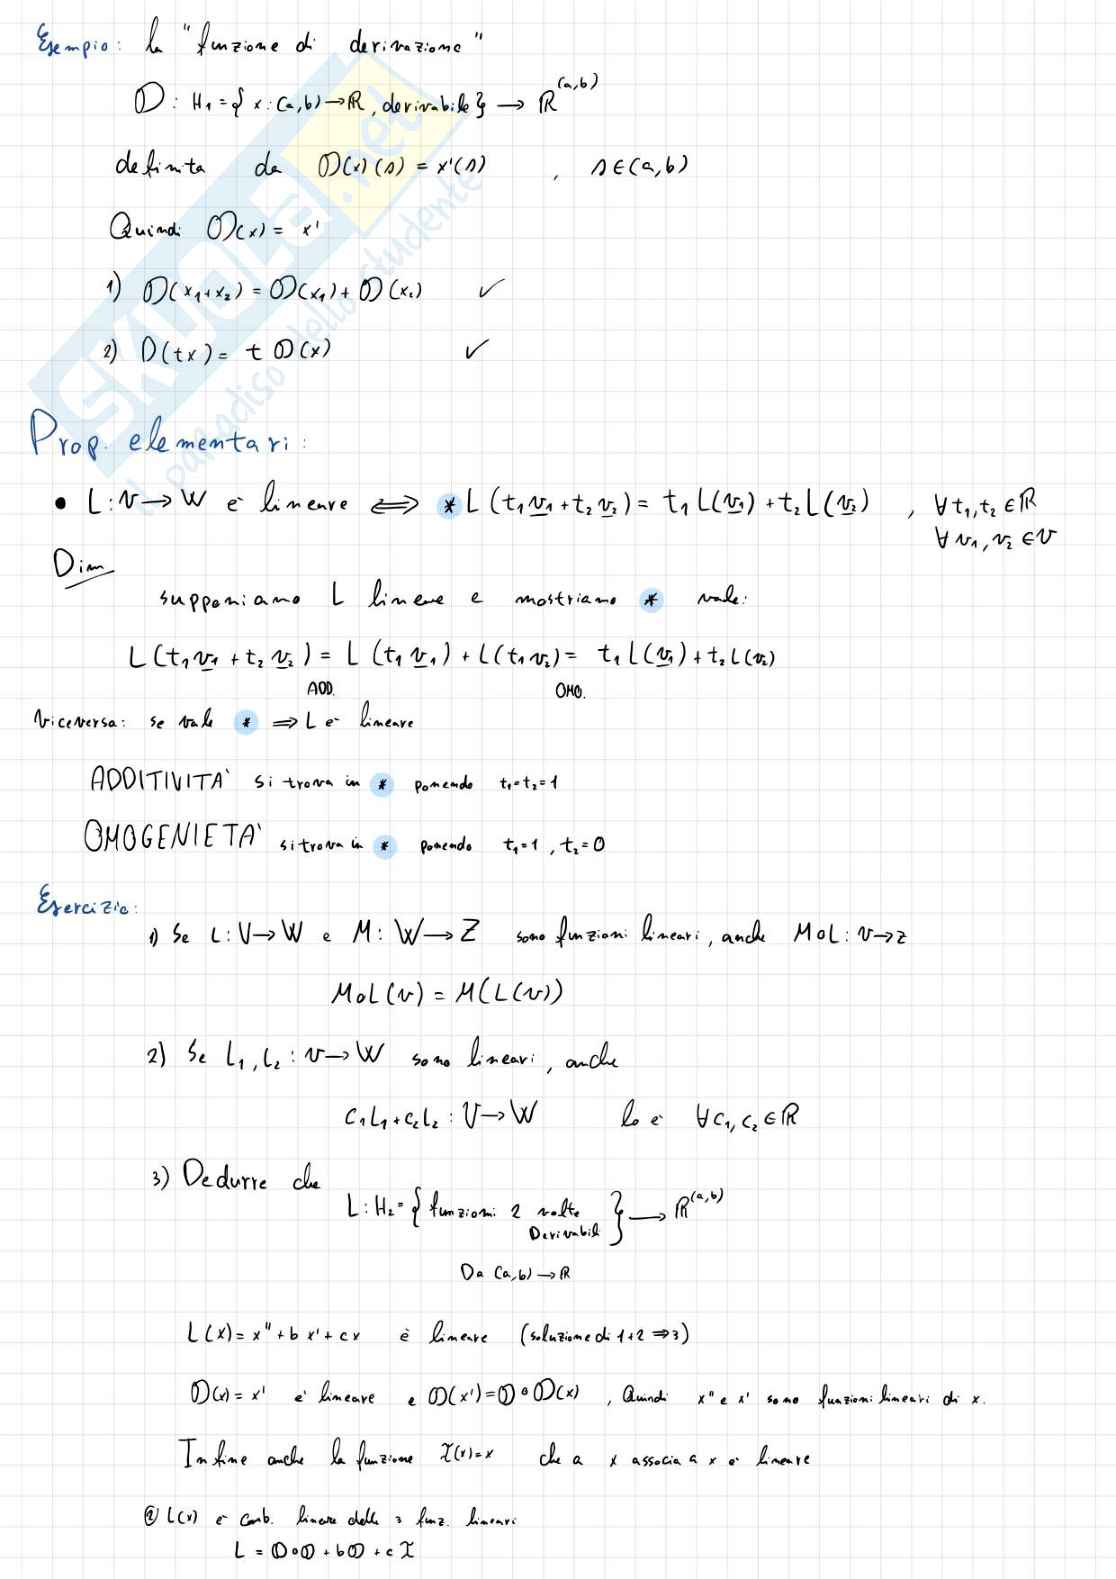 Esempio: la "funzione di derivazione"
D : H₁ = { x : (a,b) → ℝ, derivabile } → ℝ^(a,b)
definita da D(x)(s) = x'(s) , s ∈ (a,b)
Quindi D(x) = x'
1) D(x₁+x₂) = D(x₁) + D(x₂) ✓
2) D(tx) = t D(x) ✓
Prop. elementari:
• L : V → W è lineare ⟺ * L(t₁v₁ + t₂v₂) = t₁L(v₁) + t₂L(v₂) , ∀ t₁,t₂ ∈ ℝ
∀ v₁, v₂ ∈ V
Dim
supponiamo L lineare e mostriamo * vale:
L(t₁v₁ + t₂v₂) = L(t₁v₁) + L(t₁v₂) = t₁L(v₁) + t₂L(v₂)
ADD. OMO.
Viceversa: se vale * ⇒ L è lineare
ADDITIVITA' si trova in * ponendo t₁=t₂=1
OMOGENIETA' si trova in * ponendo t₁=1, t₂=0
Esercizio:
1) Se L : V → W e M : W → Z sono funzioni lineari, anche M∘L : V → Z
M∘L(v) = M(L(v))
2) Se L₁, L₂ : V → W sono lineari, anche
c₁L₁ + c₂L₂ : V → W lo è ∀ c₁, c₂ ∈ ℝ
3) Dedurre che
L : H₂ = { funzioni 2 volte } → ℝ^(a,b)
Derivabili
Da (a,b) → ℝ
L(x) = x'' + b x' + cx è lineare (soluzione di 1+2 ⇒ 3)
D(x) = x' è lineare e D(x') = D∘D(x) , Quindi x'' e x' sono funzioni lineari di x.
Infine anche la funzione I(x)=x che a x associa a x è lineare
② L(x) è comb. lineare delle 3 funz. lineari
L = D∘D + bD + c I
SKUOLA.net
il paradiso dello studente